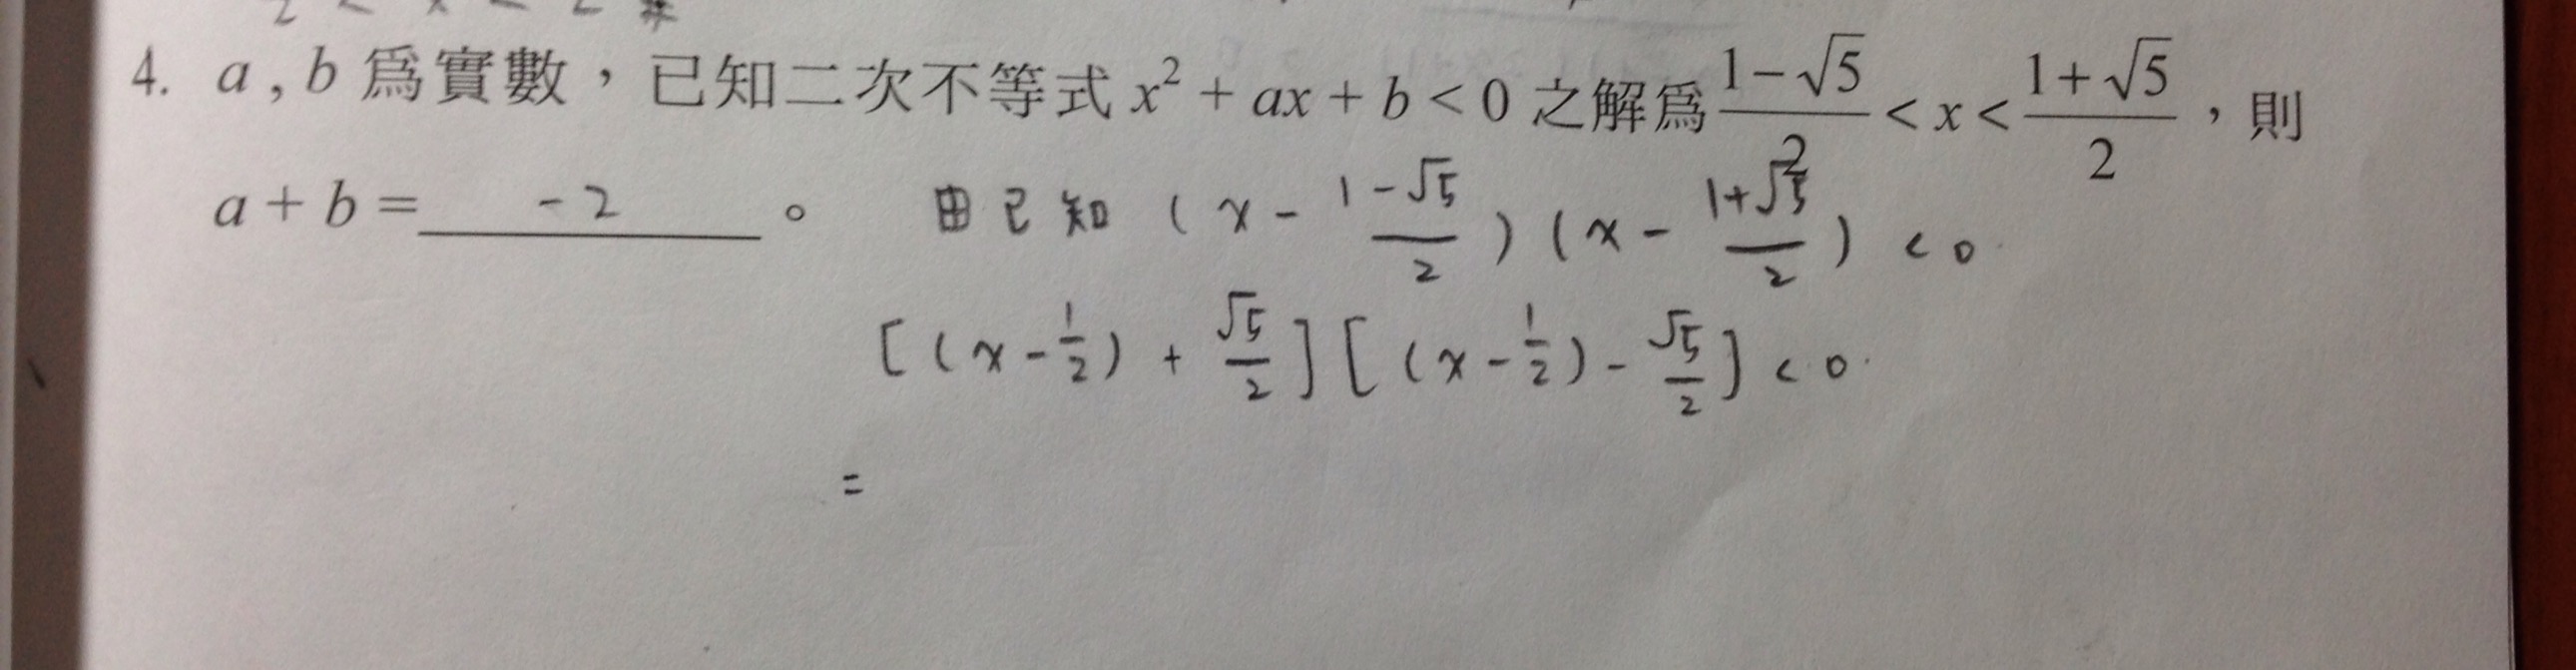 4. a , b 為實數，已知二次不等式 x² + ax + b < 0 之解為 (1−√5)/2 < x < (1+√5)/2 ，則
a + b = -2 。
由已知 (x - (1-√5)/2) (x - (1+√5)/2) < 0
[(x - 1/2) + √5/2] [(x - 1/2) - √5/2] < 0
=